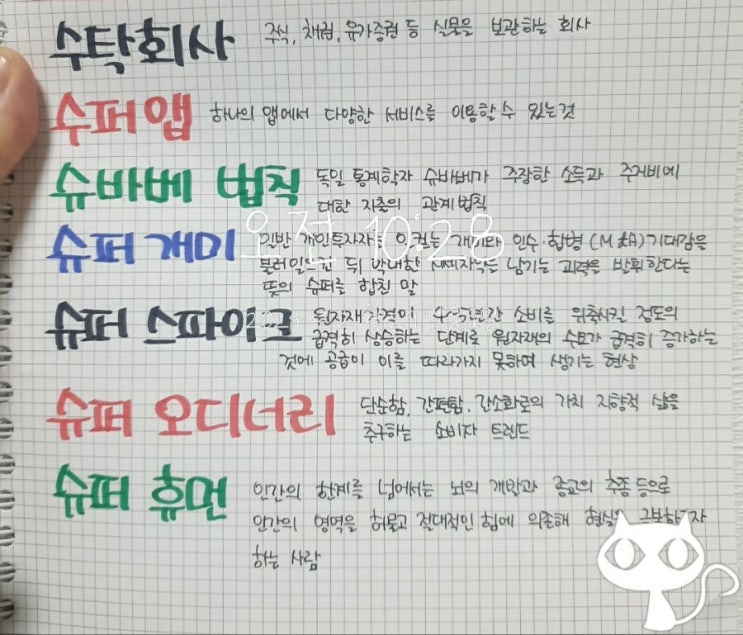 수탁회사 주식, 채권, 유가증권 등 실물을 보관하는 회사
슈퍼앱 하나의 앱에서 다양한 서비스를 이용할 수 있는것
슈바베 법칙 독일 통계학자 슈바베가 주장한 소득과 주거비에
대한 지출의 관계법칙
오전 10:28
슈퍼개미 일반 개인투자자를 개미와 인수·합병(M&A)기대감을
뒤 막대한 남기는 괴력을 발휘한다는
뜻의 슈퍼를 합친 말
슈퍼 스파이크 원자재가격이 4~5년간 소비를 위축시킬 정도의
급격히 상승하는 단계로 원자재의 수요가 급격히 증가하는
것에 공급이 이를 따라가지 못하며 생기는 현상
슈퍼 오디너리 단순함, 간편함, 간소화로의 가치 지향적 삶을
추구하는 소비자 트렌드
슈퍼 휴먼 인간의 한계를 넘어서는 뇌의 개발과 종교의 추종 등으로
인간의 영역을 허물고 절대적인 힘에 의존해
하는 사람